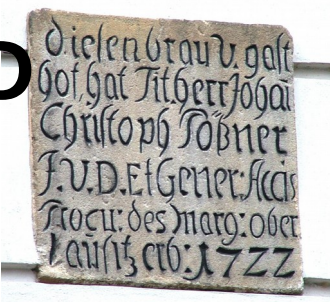 diesen brau v. gast
hof, hat Tit. herr Johan
Christoph Tößner
J.V.D. Et Gener: Accis
Procu: des marg: ober
Lausitz erb: 1722